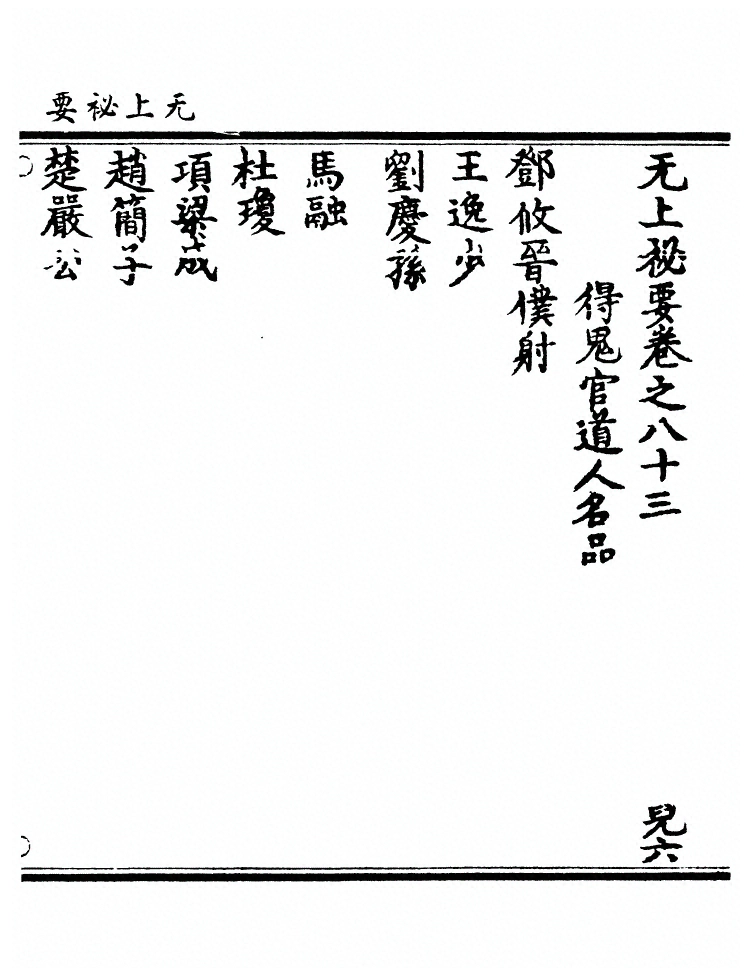 无上祕要
无上祕要卷之八十三 兒六
得鬼官道人名品
鄧攸晉僕射
王逸少
劉慶孫
馬融
杜瓊
項梁成
趙簡子
楚嚴公